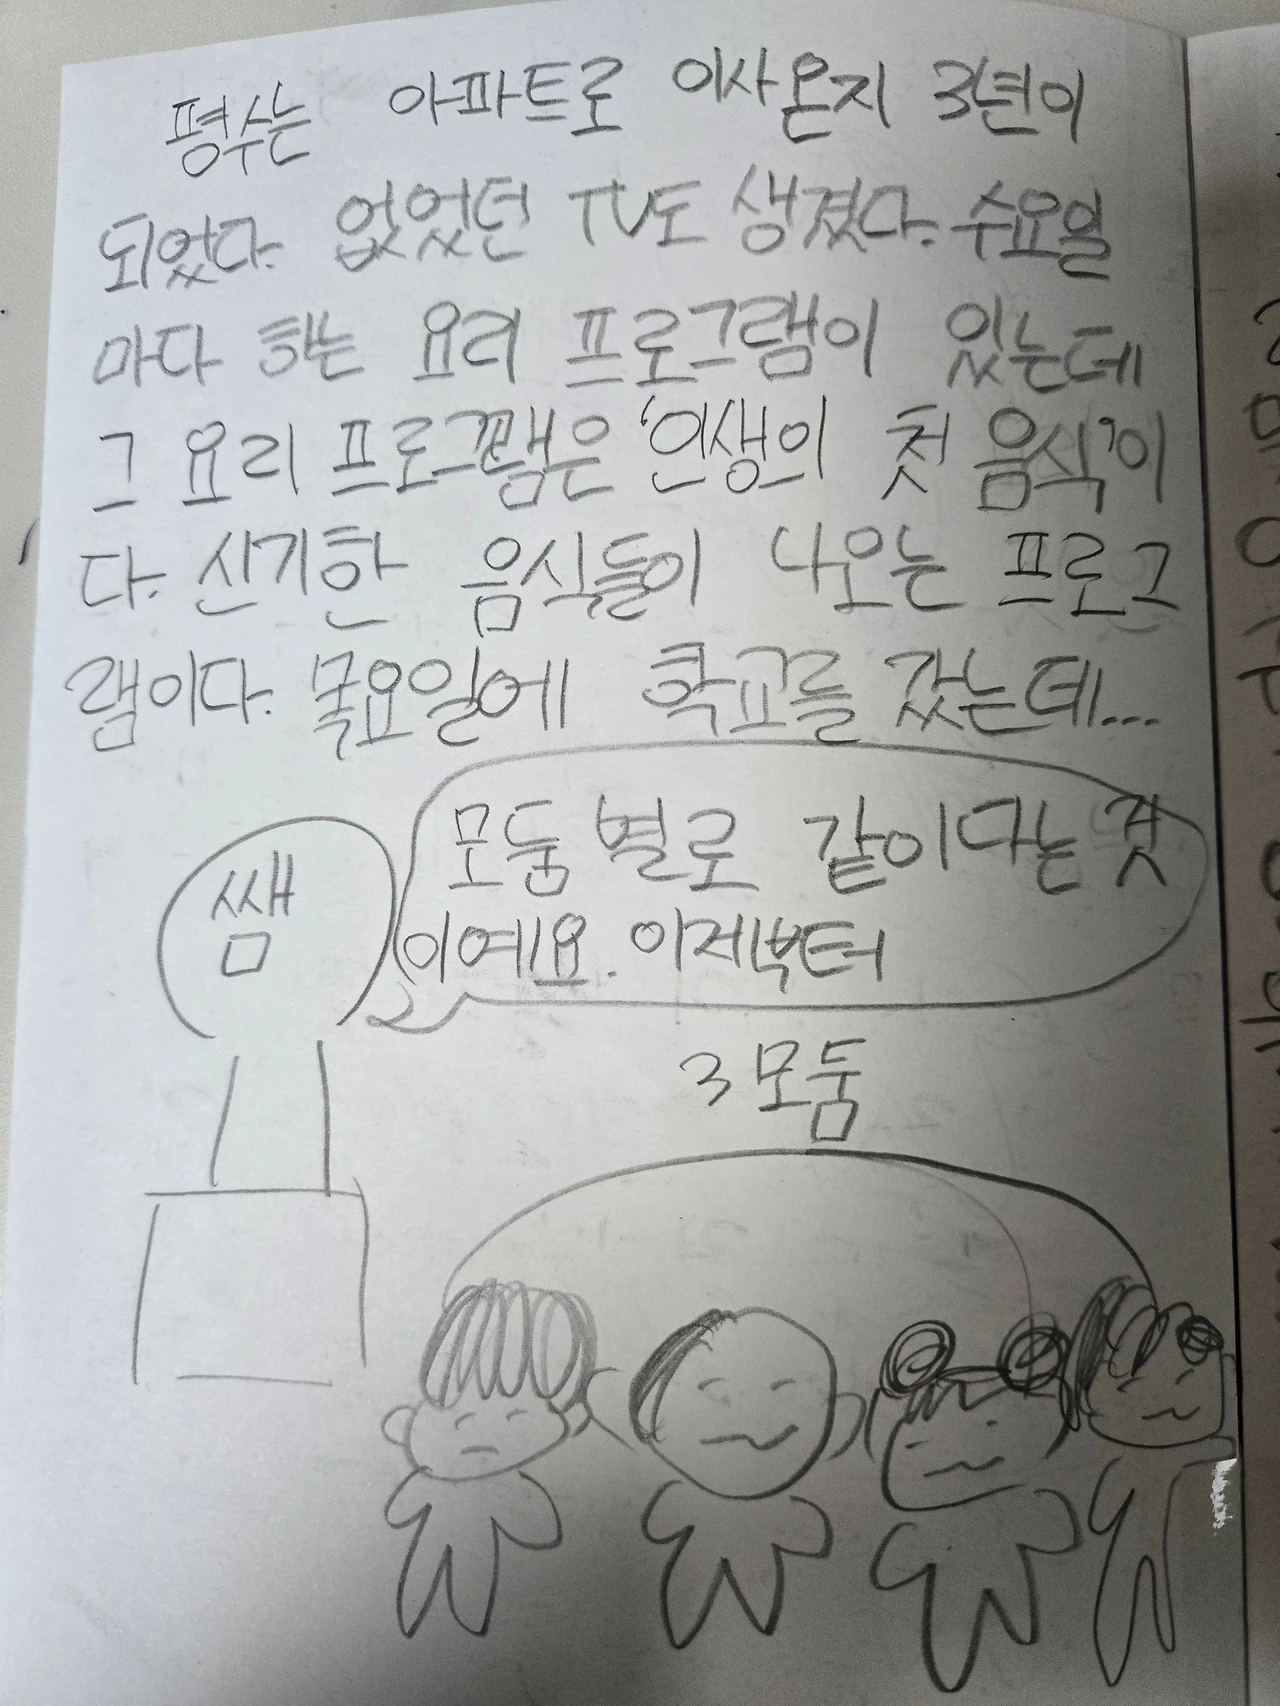 평수는 아파트로 이사온지 3년이
되었다. 없었던 TV도 생겼다. 수요일
마다 하는 요리 프로그램이 있는데
그 요리 프로그램은 '인생의 첫 음식'이
다. 신기한 음식들이 나오는 프로그
램이다. 목요일에 학교를 갔는데...
쌤
모둠별로 같이다는 것
이예요. 이제부터
3모둠